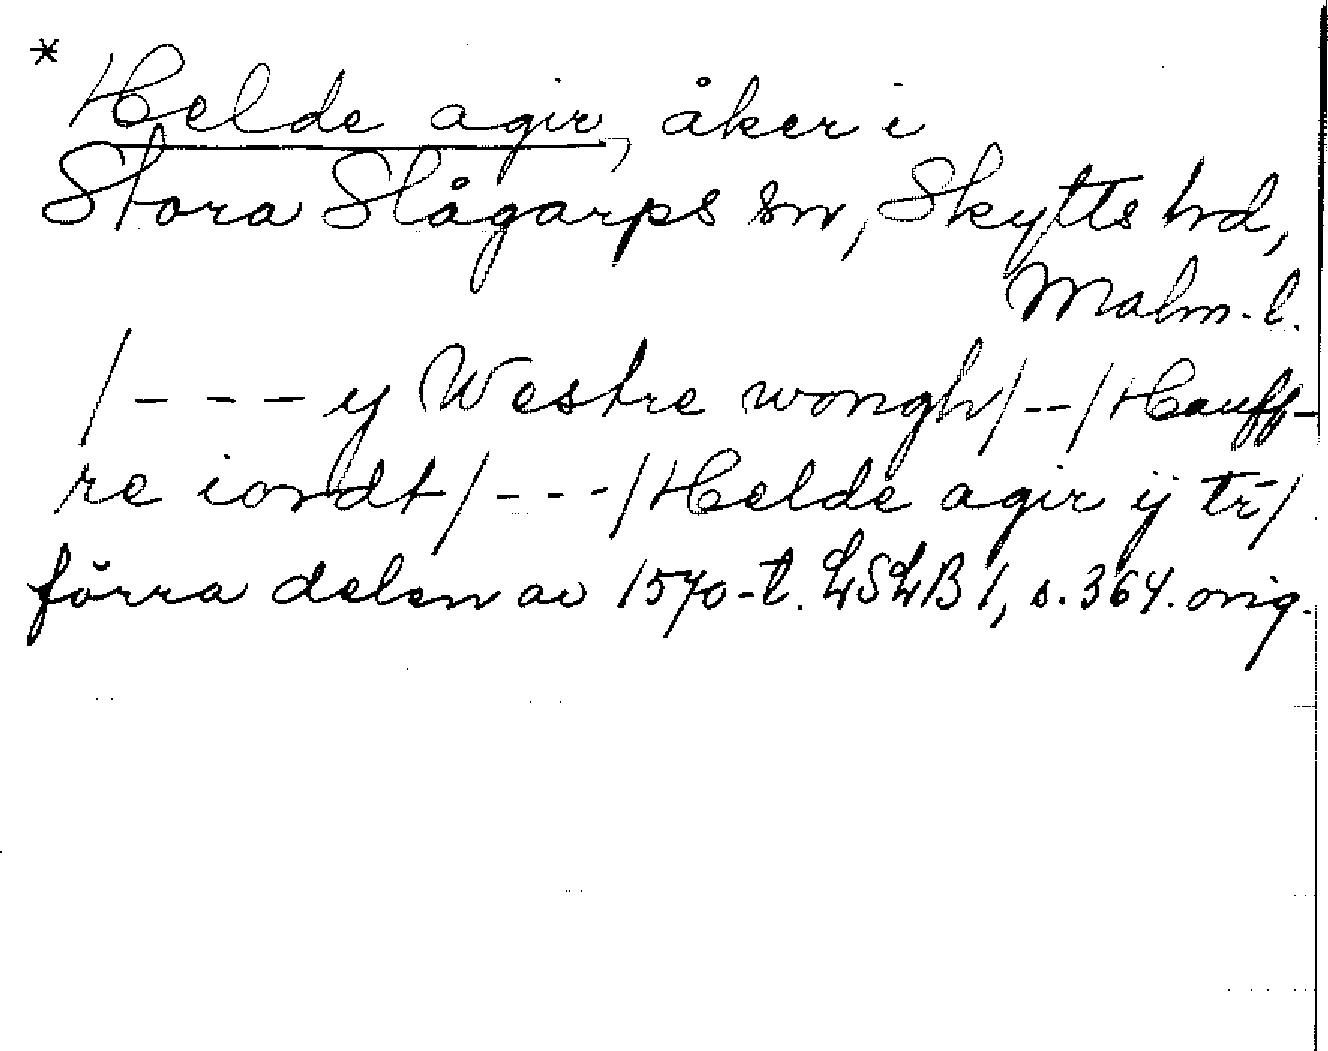 * Helde agir, åker i
Stora Slågarps sn, Skytts hd,
Malm. l.
/--- y Westre wongh/--/Hauff-
re iordt/---/Helde agir ij tr/
förra delen av 1570-t. LSLB 1, s. 364. orig.